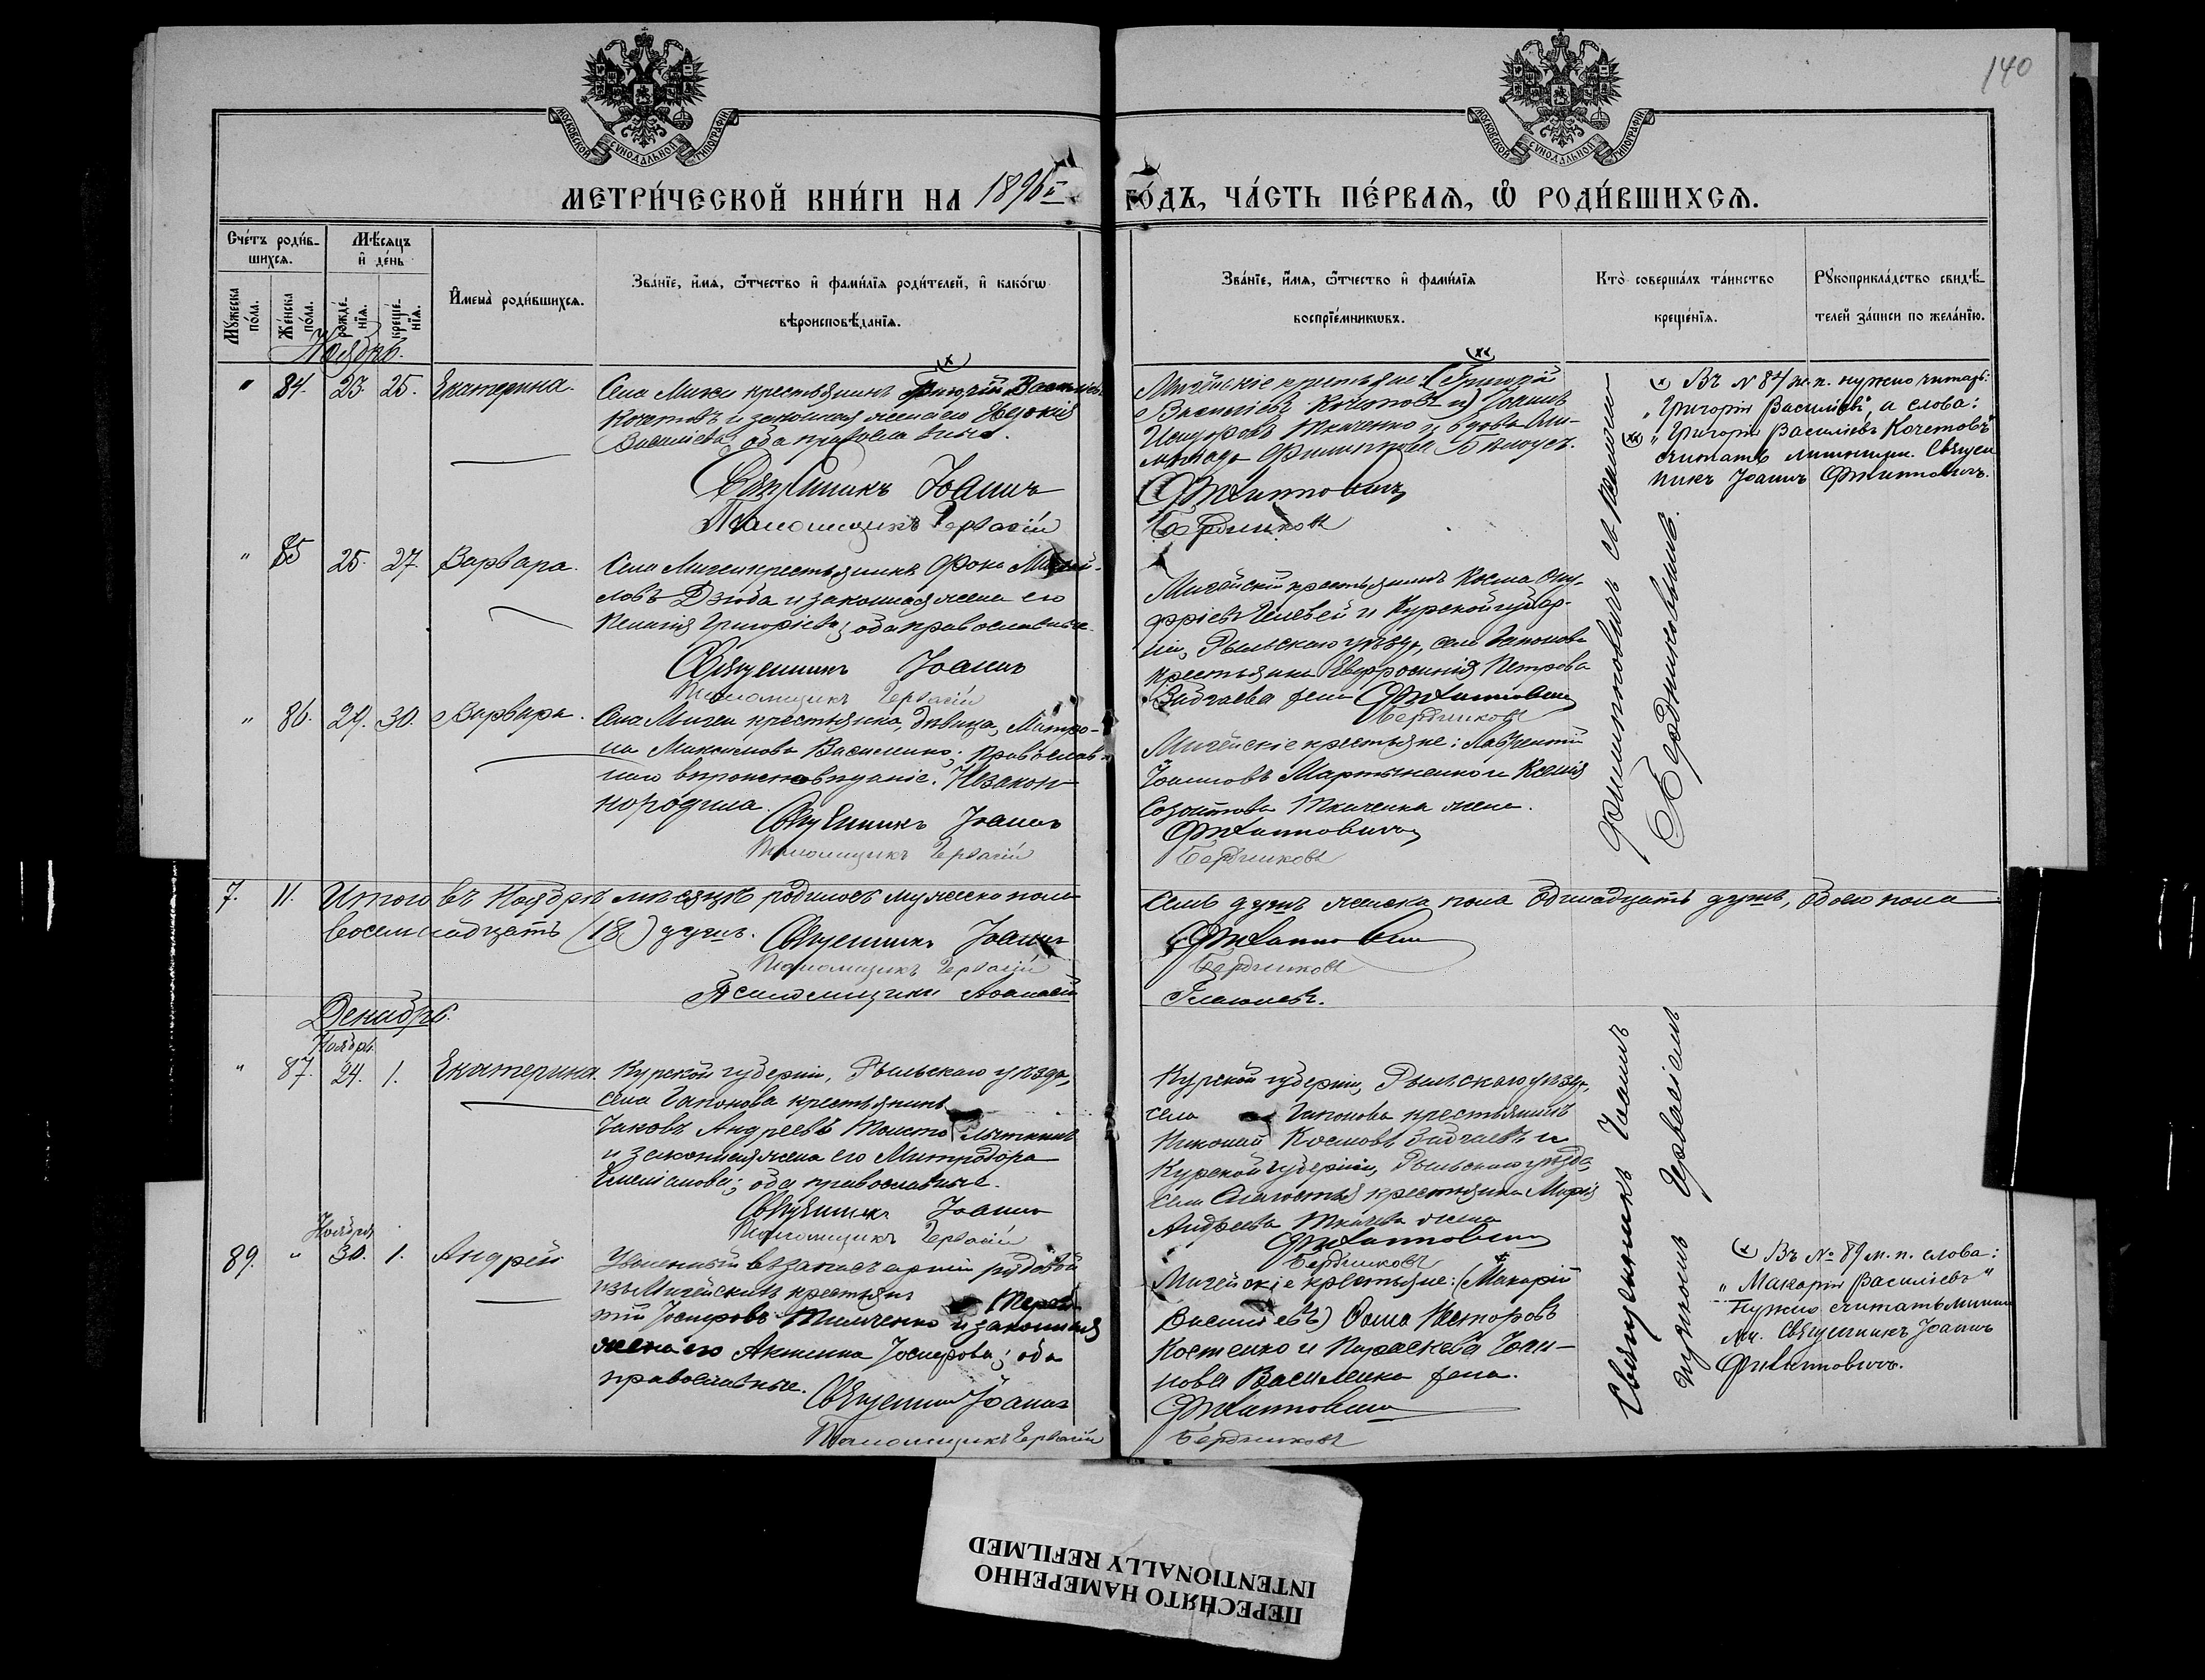 140
МОСКОВСКОЙ СУНОДАЛЬНОЙ ТИПОГРАФІИ
МОСКОВСКОЙ СУНОДАЛЬНОЙ ТИПОГРАФІИ
МЕТРИ́ЧЕСКОЙ КНИ́ГИ НА 1896й
ГО́ДЪ, ЧА́СТЬ ПЕ́РВАЯ, Ѽ РОДИ́ВШИХСЯ.
Сче́тъ роди́в-
шихся.
Мѣ́сяцъ
и҆ де́нь
Мꙋ́жеска
по́ла.
Же́нска
по́ла.
рожде́-
нїѧ.
креще́-
нїѧ.
И҆мена̀ роди́вшихся.
Зва́нїе, и҆́мѧ, ѻ҆́тчество и҆ фами́лїѧ роди́телей, и҆ како́гѡ
вѣроисповѣ́данїѧ.
Зва́нїе, и҆́мѧ, ѻ҆́тчество и҆ фами́лїѧ
воспрїе́мникѡвъ.
Кто̀ соверша́лъ та́инство
креще́нїѧ.
Рꙋкоприкла́дство свидѣ́-
телей за́писи по жела́нїю.
Ноябрь.
" 84. 23. 25. Екатерина.
Села Мигеи крестьянинъ Григорій Васильевъ
Кочетовъ и законная жена его Евдокія
Васильева; оба православные.
Священникъ Іоаннъ
Псаломщикъ Гервасій
Мигейскіе крестьяне: (Григорій
Васильевъ Кочетовъ и) Іоаннъ
Исидоровъ Ткаченко и вдова
Филиппова
Филипповичъ
Бердниковъ
Въ № 84 ж. п. нужно читать:
"Григорій Василіевъ", а слова:
"Григорій Василіевъ Кочетовъ"
считать лишними. Священ
никъ Іоаннъ Филипповичъ.
" 85 25. 27. Варвара.
Села Мигеи крестьянинъ Фока Михай-
ловъ Дзюба и законная жена его
Пелагія Григоріева; оба православные.
Священникъ Іоаннъ
Псаломщикъ Гервасій
Мигейскій крестьянинъ Косма Ону-
фріевъ и Курской губер-
ніи, Рыльскаго уѣзда, села Гапонова
крестьянка Евфросинія Петрова
Зидчаева дѣвица Филипповичъ
Бердниковъ
" 86. 29. 30. Варвара.
Села Мигеи крестьянка, дѣвица, Матро-
на Максимова Василенко; православ-
наго вѣроисповѣданія. Незакон-
норождена.
Священникъ Іоаннъ
Псаломщикъ Гервасій
Мигейскіе крестьяне: Лаврентій
Іоанновъ Мартыненко и Ксенія
Созонтова Ткаченка жена.
Филипповичъ
Бердниковъ
Филипповичъ съ
Бердниковымъ.
7. 11. Итого въ Ноябрѣ мѣсяцѣ родилось мужеска пола
семь душъ женска пола одинадцать душъ, обоего пола
восемнадцать (18) душъ. Священникъ Іоаннъ
Филипповичъ
Псаломщикъ Гервасій
Бердниковъ
Псаломщикъ Аѳанасій
Декабрь.
Ноября
" 87. 24. 1. Екатерина.
Курской губерніи, Рыльскаго уѣзда,
села Гапонова крестьянинъ
Іаковъ Андреевъ
и законная жена его Митродора
Емеліанова; оба православные.
Священникъ Іоаннъ
Псаломщикъ Гервасій
Курской губерніи, Рыльскаго уѣзда,
села Гапонова крестьянинъ
Николай Космовъ Зидчаевъ и
Курской губерніи, Рыльскаго уѣзда
села крестьянка Марія
Андреева Ткачева жена
Филипповичъ
Бердниковъ
Ноября
89. " 30. 1. Андрей
Уволенный въ запасъ арміи рядовой
изъ Мигейскихъ крестьянъ Терен-
тій Іосифовъ Тимченко и законная
жена его Акилина Іосифова; оба
православные.
Священникъ Іоаннъ
Псаломщикъ Гервасій
Мигейскіе крестьяне: (Макарій
Василіевъ) Ѳома Несторовъ
Костенко и Параскева Іоан-
нова Василенка жена.
Филипповичъ
Бердниковъ
Священникъ Іоаннъ
Гервасіемъ
Въ № 89 м. п. слова:
"Макарій Василіевъ"
нужно считать лишни
ми. Священникъ Іоаннъ
Филипповичъ.
ПЕРЕСНЯТО НАМЕРЕННО
INTENTIONALLY REFILMED